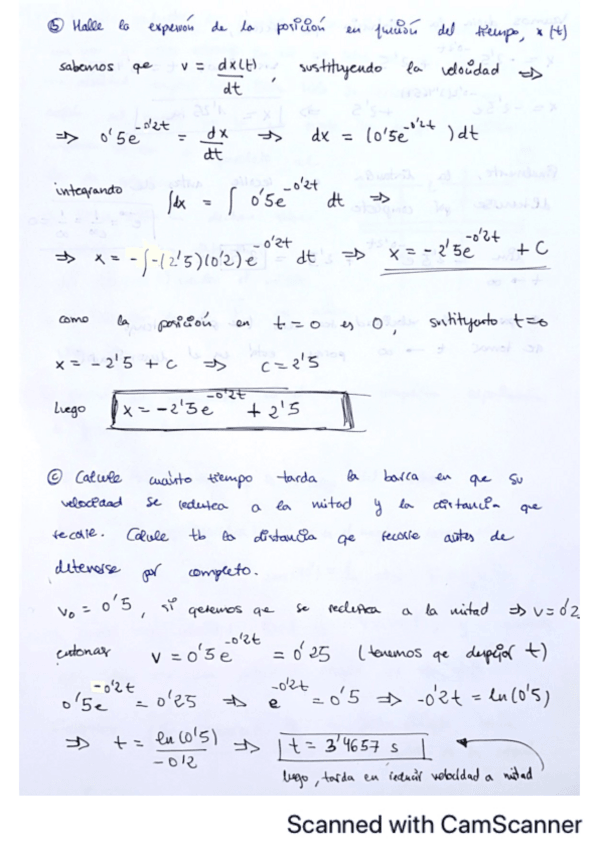 ⓑ Halle la expresión de la posición en función del tiempo, x(t)
sabemos que v = dx(t)/dt, sustituyendo la velocidad =>
=> 0'5e^-0'2t = dx/dt => dx = (0'5e^-0'2t)dt
integrando ∫dx = ∫ 0'5e^-0'2t dt =>
=> x = -∫-(2'5)(0'2)e^-0'2t dt => x = -2'5e^-0'2t + C
como la posición en t=0 es 0, sustituyendo t=0
x = -2'5 + C => C = 2'5
luego x = -2'5e^-0'2t + 2'5
ⓒ Calcule cuánto tiempo tarda la barca en que su
velocidad se reduzca a la mitad y la distancia que
recorre. Calcule tb la distancia qe recorre antes de
detenerse por completo.
v₀ = 0'5, si queremos que se reduzca a la mitad => v=0'2
entonces v = 0'5e^-0'2t = 0'25 (tenemos qe despejar t)
0'5e^-0'2t = 0'25 => e^-0'2t = 0'5 => -0'2t = ln(0'5)
=> t = ln(0'5)/-0'2 => t = 3'4657 s
luego, tarda en reducir velocidad a mitad
Scanned with CamScanner